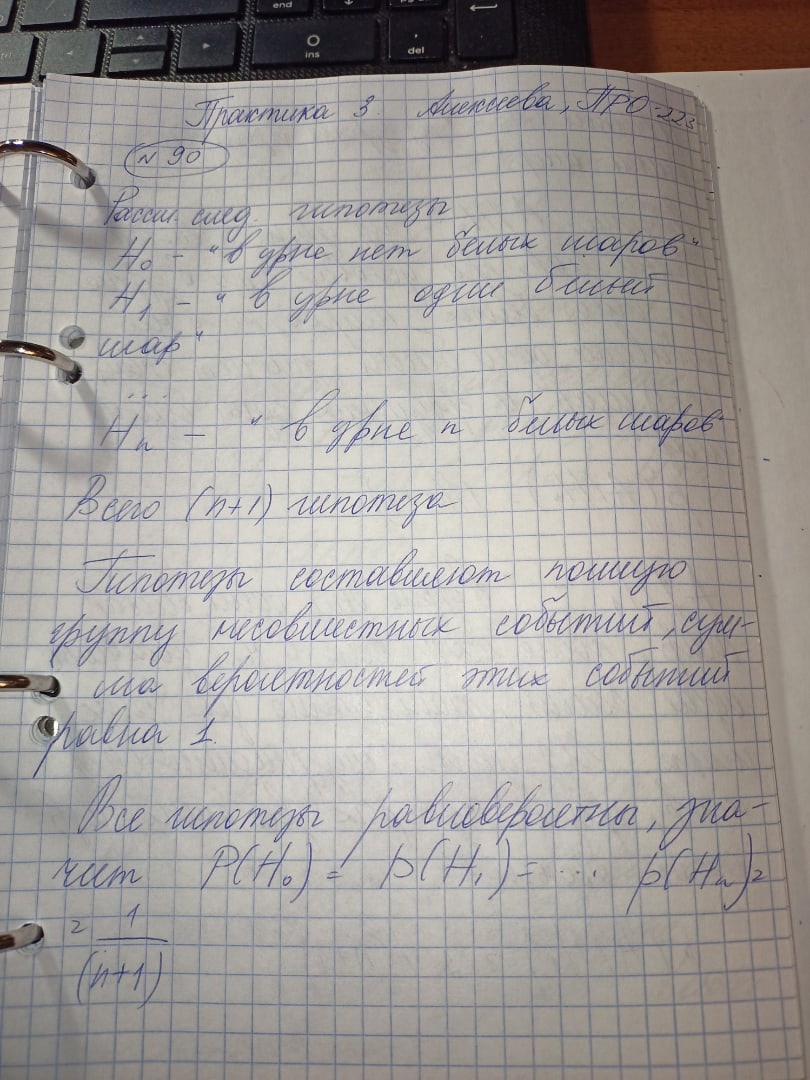 end
ins
del
Практика 3 Алексеева, ПРО-223
№ 90
Рассм. след. гипотезы
H₀ - "в урне нет белых шаров"
H₁ - "в урне один белый
шар"
...
Hₙ - "в урне n белых шаров"
Всего (n+1) гипотеза
Гипотезы составляют полную
группу несовместных событий, сум-
ма вероятностей этих событий
равна 1.
Все гипотезы равновероятны, зна-
чит P(H₀) = p(H₁) = ... p(Hₙ) =
= 1/(n+1)